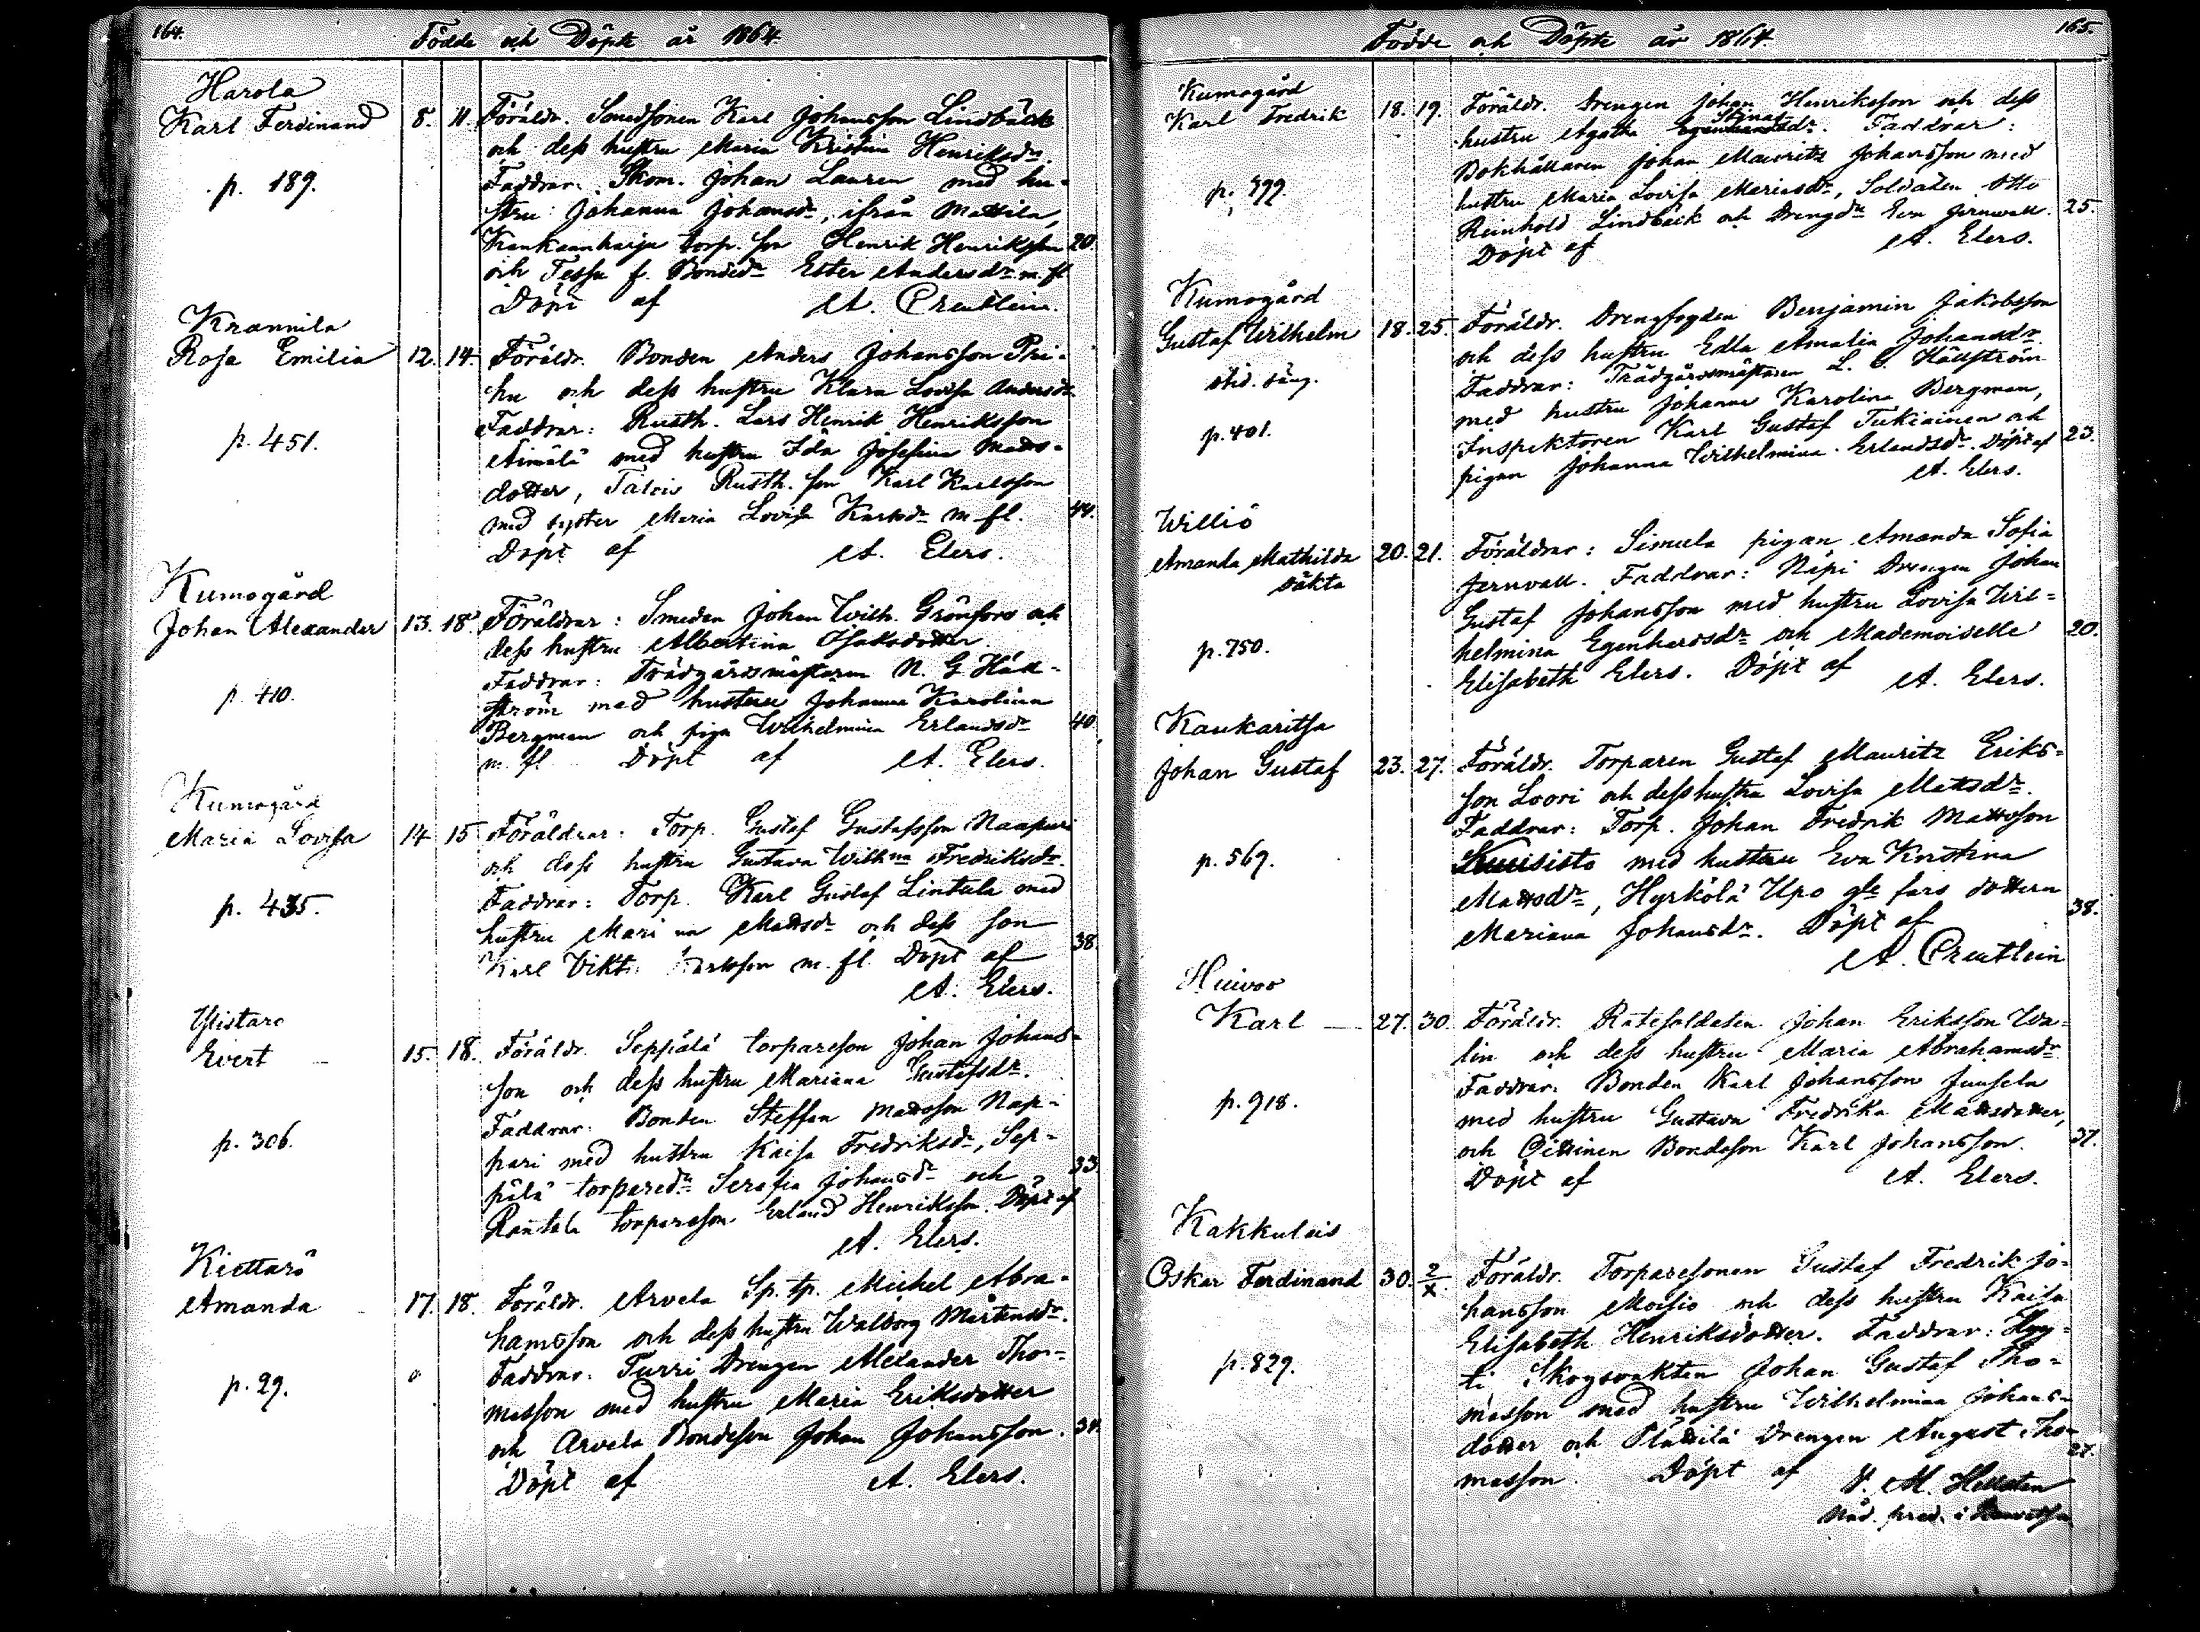 164.
Födde och Döpte år 1864.
Harola
Karl Ferdinand 8. 11. Föräldr. Smedsonen Karl Johansson Lindbäck
och dess hustru Maria Kristina Henriksdr.
p. 189.
Faddrar: Skom. Johan Lauren med hu-
stru Johanna Johansd., ifrån Mattila,
Kankaanharju torp. son Henrik Henriksson 20.
och f. Bonded. Ester Andersdr m. fl
Döpt af A. Creutlein.
Krannila
Rosa Emilia 12. 14. Föräldr. Bonden Anders Johansson Pri-
hu och dess hustru Klara Lovisa Andersdr.
Faddrar: Rusth. Lars Henrik Henriksson
p. 451.
Aimälä med hustru Ida Josefina Matts-
dotter, Talois Rusth. son Karl Karlsson
med syster Maria Lovisa Karlsdr m. fl. 44.
Döpt af A. Elers.
Kumogård
Johan Alexander 13. 18. Föräldrar: Smeden Johan Wilh. Grönfors och
dess hustru Albertina Isaksdotter
Faddrar: Trädgårdsmästaren N. G. Häll-
p. 410.
ström med hustru Johanna Karolina
Bergman och piga Wilhelmina Erlandsdr 40.
m. fl. Döpt af A. Elers.
Kumogård
Maria Lovisa 14 15 Föräldrar: Torp. Gustaf Gustafsson Naapuri
och dess hustru Gustava Wilhna Fredriksdr.
Faddrar: Torp. Karl Gustaf Lintula med
p. 435.
hustru Mari na Mattsdr och dess son 38.
Karl Vikt. Karlsson m. fl. Döpt af
A. Elers.
Ylistaro
Evert 15. 18. Föräldr. Seppälä torpareson Johan Johans-
son och dess hustru Mariana Gustafsdr.
Faddrar: Bonden Steffan Mattsson Nap-
p. 306.
pari med hustru Kaisa Fredriksdr, Sep-
pälä torparedr Serafia Johansdr och 33.
Rantala torpareson Erland Henriksson. Döpt af
A. Elers.
Kiettarö
Amanda 17. 18. Föräldr. Arvela Sp. tp. Mickel Abra-
hamsson och dess hustru Walborg Mårtensdr.
Faddrar: Turri Drengen Melander Tho-
p. 29.
masson med hustru Maria Eriksdotter
och Arvela Bondeson Johan Johansson. 34.
Döpt af A. Elers.
165.
Födde och Döpte år 1864.
Kumogård
Karl Fredrik 18. 19. Föräldr. Drengen Johan Henriksson och dess
hustru Agatha Stinas dr. Faddrar:
Bokhållaren Johan Mauritz Johansson med
p. 499.
hustru Maria Lovisa Mariasdr, Soldaten Otto
Reinhold Lindbäck och Drengdr Eva Jernvall. 25.
Döpt af A. Elers.
Kumogård
Gustaf Wilhelm 18. 25. Föräldr. Drengfogden Benjamin Jakobsson
och dess hustru Edla Amalia Johansdr.
Faddrar: Trädgårdsmästaren L. G. Hällström
med hustru Johanna Karolina Bergman,
p. 401.
Inspektoren Karl Gustaf Tukiainen och 23.
pigan Johanna Wilhelmina Erlandsdr. Döpt af
A. Elers.
Williö
Amanda Mathilda 20. 21. Föräldrar: Simula pigan Amanda Sofia
oäkta
Jernvall. Faddrar: Näpi Drengen Johan
Gustaf Johansson med hustru Lovisa Wil-
p. 750.
helmina Egenhardsdr och Mademoiselle 20.
Elisabeth Elers. Döpt af A. Elers.
Kaukaritsa
Johan Gustaf 23. 27. Föräldr. Torparen Gustaf Mauritz Eriks-
son Loori och dess hustru Lovisa Mattsdr.
Faddrar: Torp. Johan Fredrik Mattsson
p. 569.
Kuusisto med hustru Eva Kristina
Mattsdr, Hyrkölä Upo gle fars dottern 38.
Mariana Johansdr. Döpt af
A. Creutlein
Huivoo
Karl 27. 30. Föräldr. Rotesoldaten Johan Eriksson Wa-
lin och dess hustru Maria Abrahamsdr
Faddrar: Bonden Karl Johansson Junsela
p. 918.
med hustru Gustava Fredrika Mattsdotter,
och Oittinen Bondeson Karl Johansson. 37.
Döpt af A. Elers.
Kakkulais
Oskar Ferdinand 30. 2/X. Föräldr. Torparesonen Gustaf Fredrik Jo-
hansson Moisio och dess hustru Kaisa
Elisabeth Henriksdotter. Faddrar: Hon-
p. 829.
ti Skogsvakten Johan Gustaf Tho-
masson med hustru Wilhelmina Johans-
dotter och Plättilä Drengen August Tho- 27.
masson. Döpt af V. M. Hellsten
Nåd. pred. i